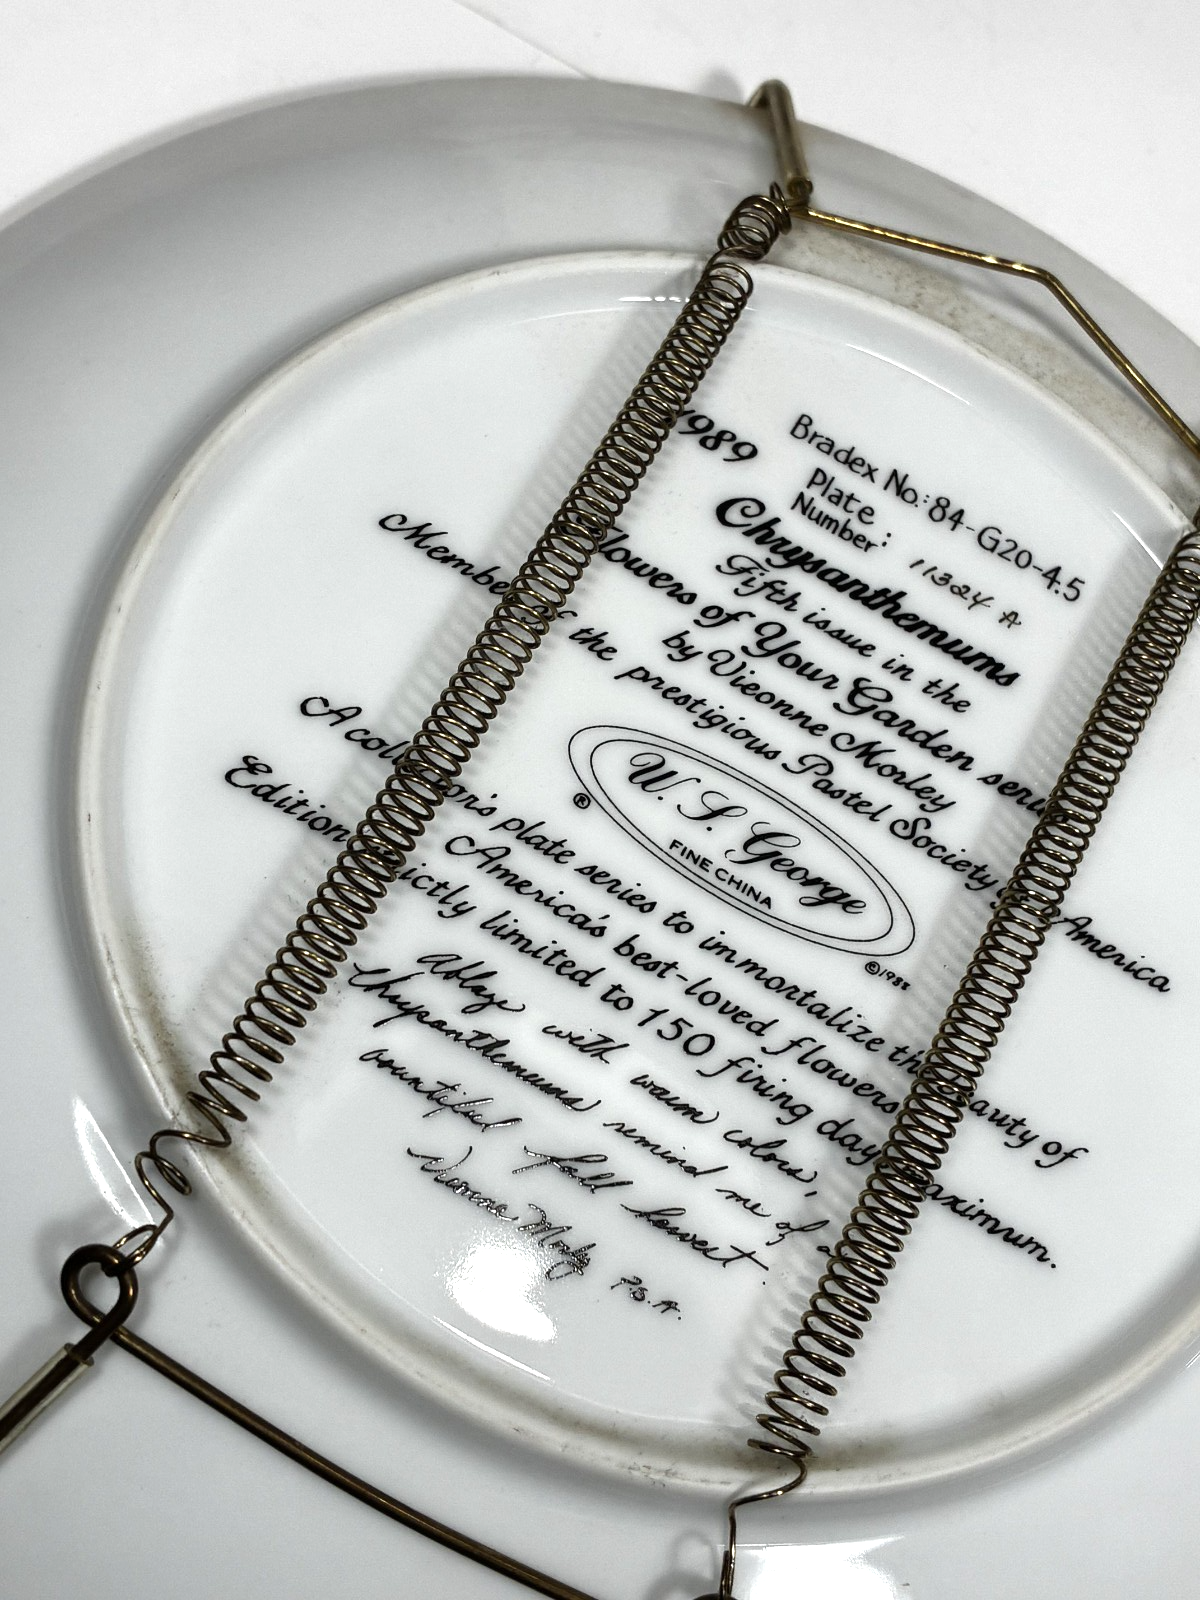 1989
Bradex No: 84-G20-4.5
Plate
Number: 11324 A
Chrysanthemums
Fifth issue in the
Flowers of Your Garden series
by Vieonne Morley
Member of the prestigious Pastel Society of America
W. S. George
FINE CHINA
®
©1988
A collector's plate series to immortalize the beauty of
America's best-loved flowers
Edition strictly limited to 150 firing days maximum.
Ablaze with warm colors,
Chrysanthemums remind me of a
bountiful fall harvest.
Vieonne Morley P.S.A.